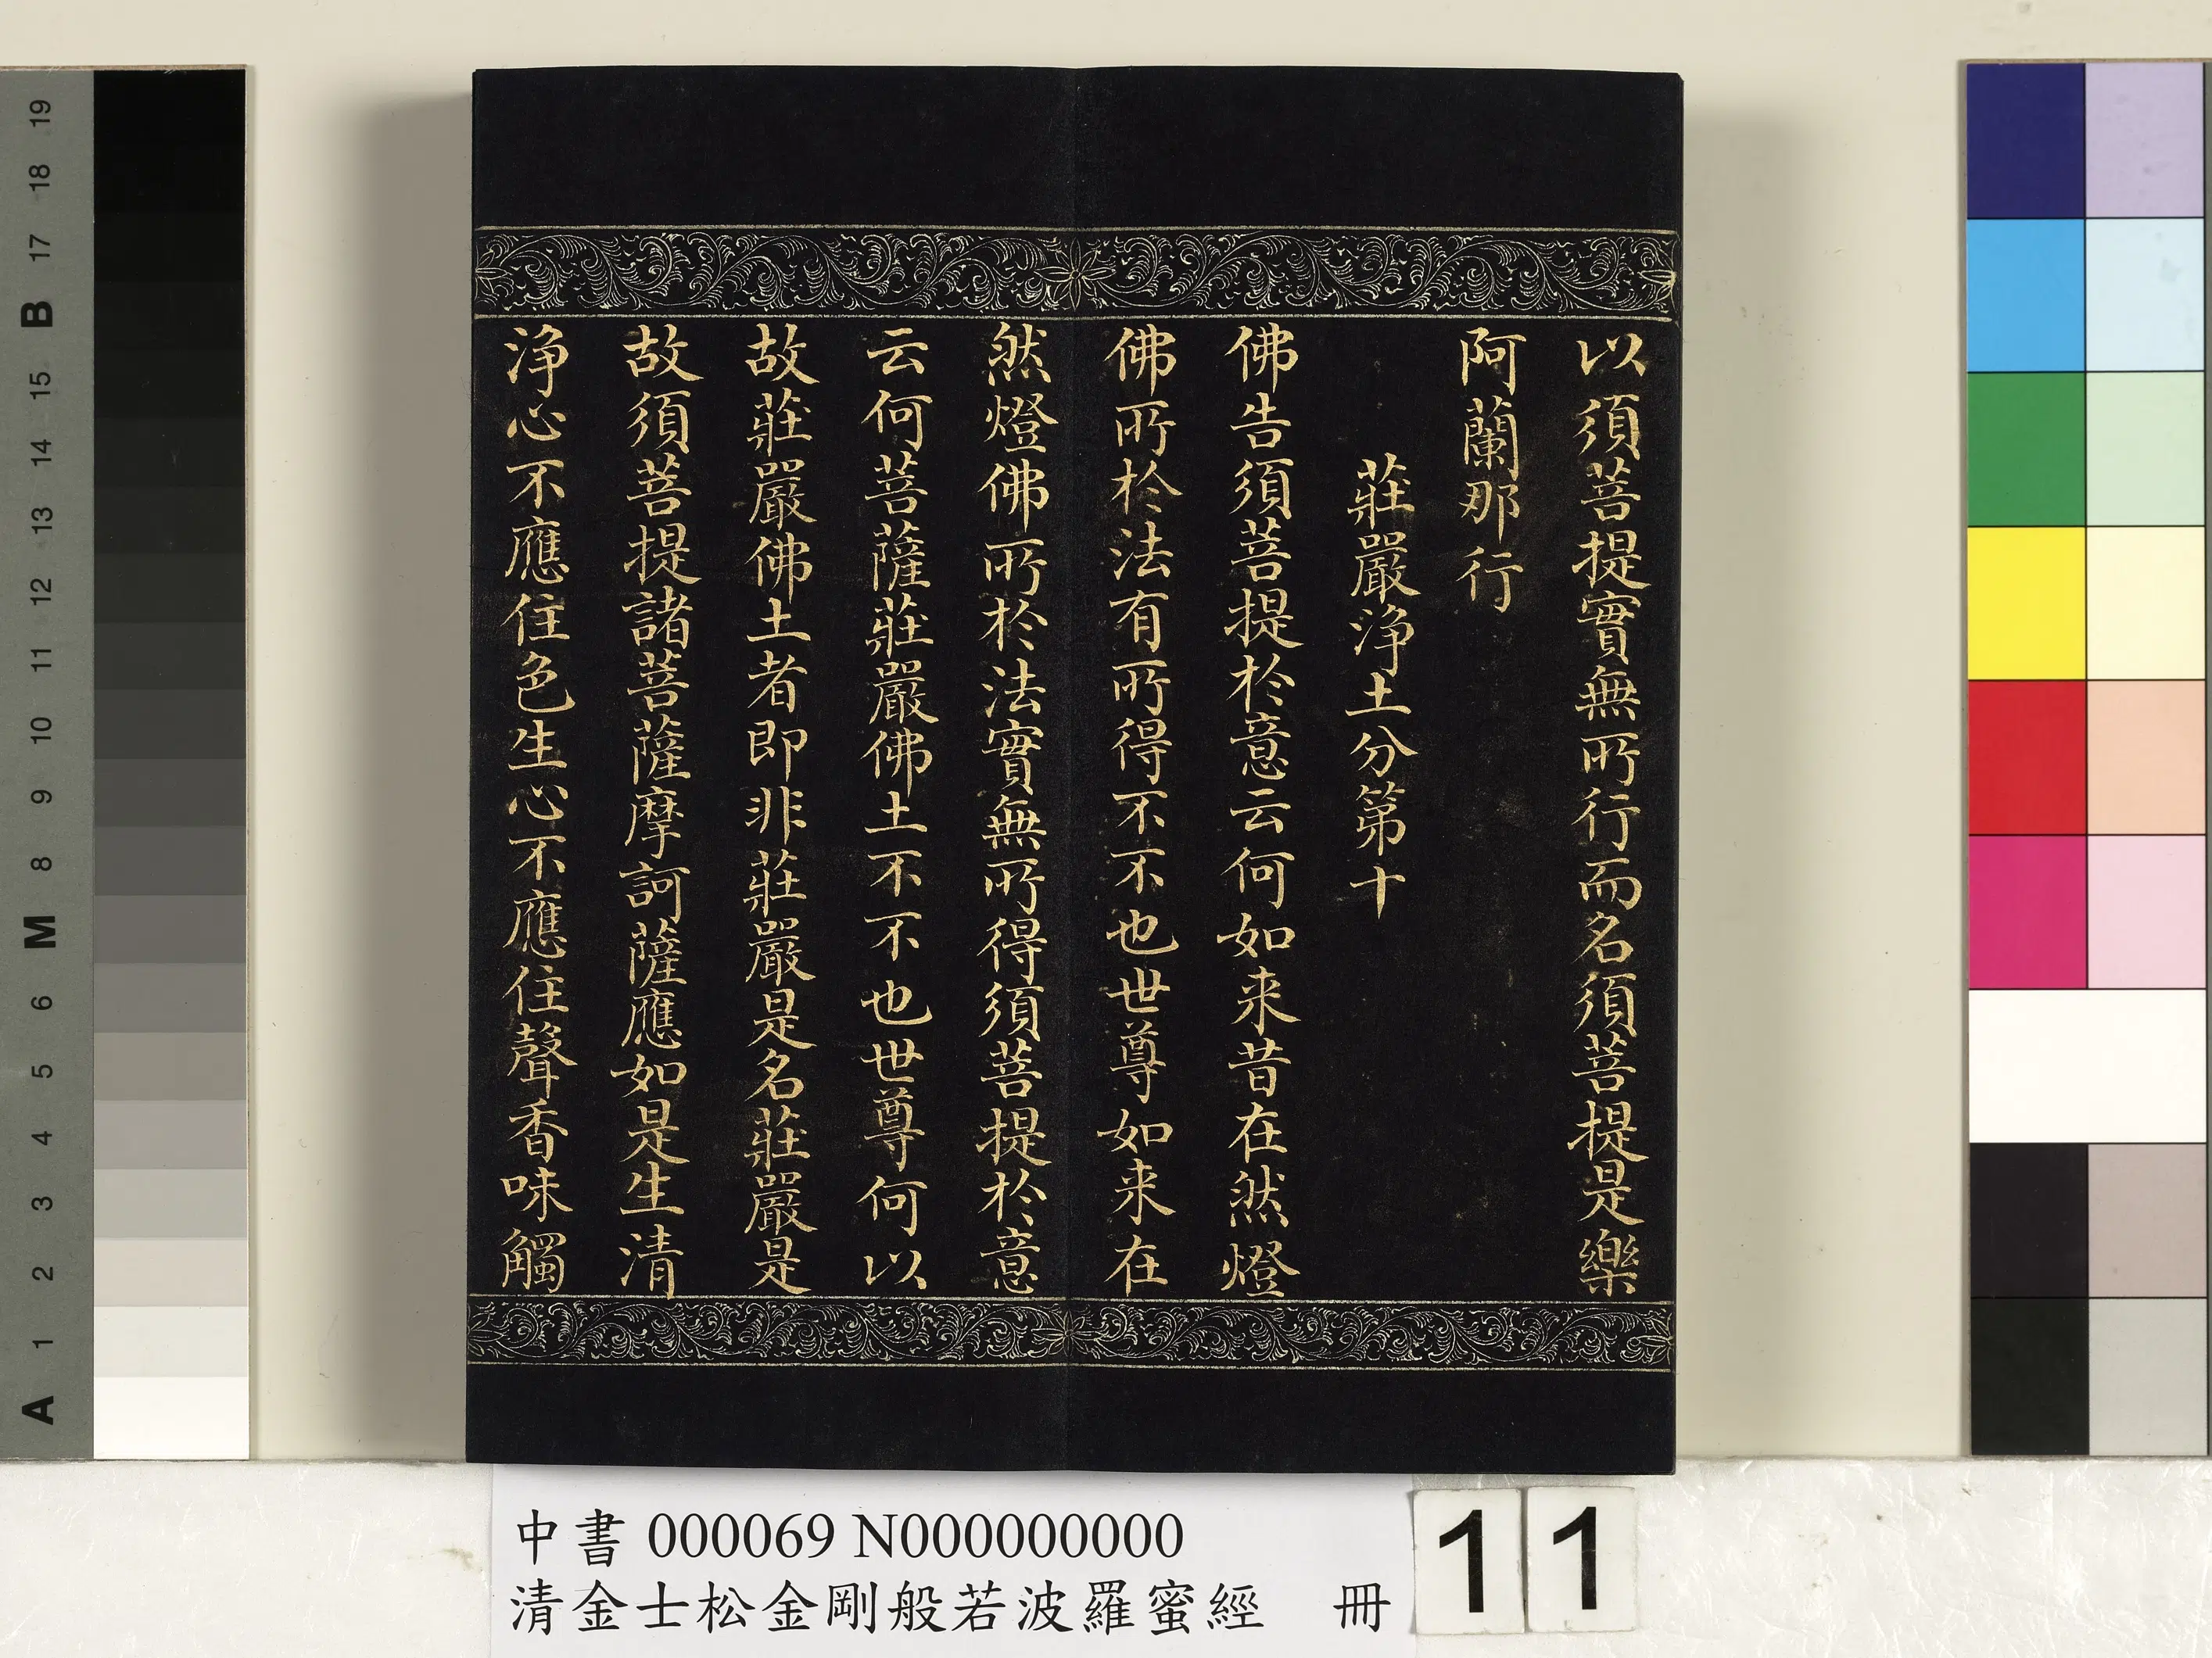 以須菩提實無所行而名須菩提是樂
阿蘭那行
莊嚴淨土分第十
佛告須菩提於意云何如来昔在然燈
佛所於法有所得不不也世尊如来在
然燈佛所於法實無所得須菩提於意
云何菩薩莊嚴佛土不不也世尊何以
故莊嚴佛土者即非莊嚴是名莊嚴是
故須菩提諸菩薩摩訶薩應如是生清
淨心不應住色生心不應住聲香味觸
中書 000069 N000000000
清金士松金剛般若波羅蜜經 冊
11
19
18
17
B
15
14
13
12
11
10
9
8
M
6
5
4
3
2
1
A